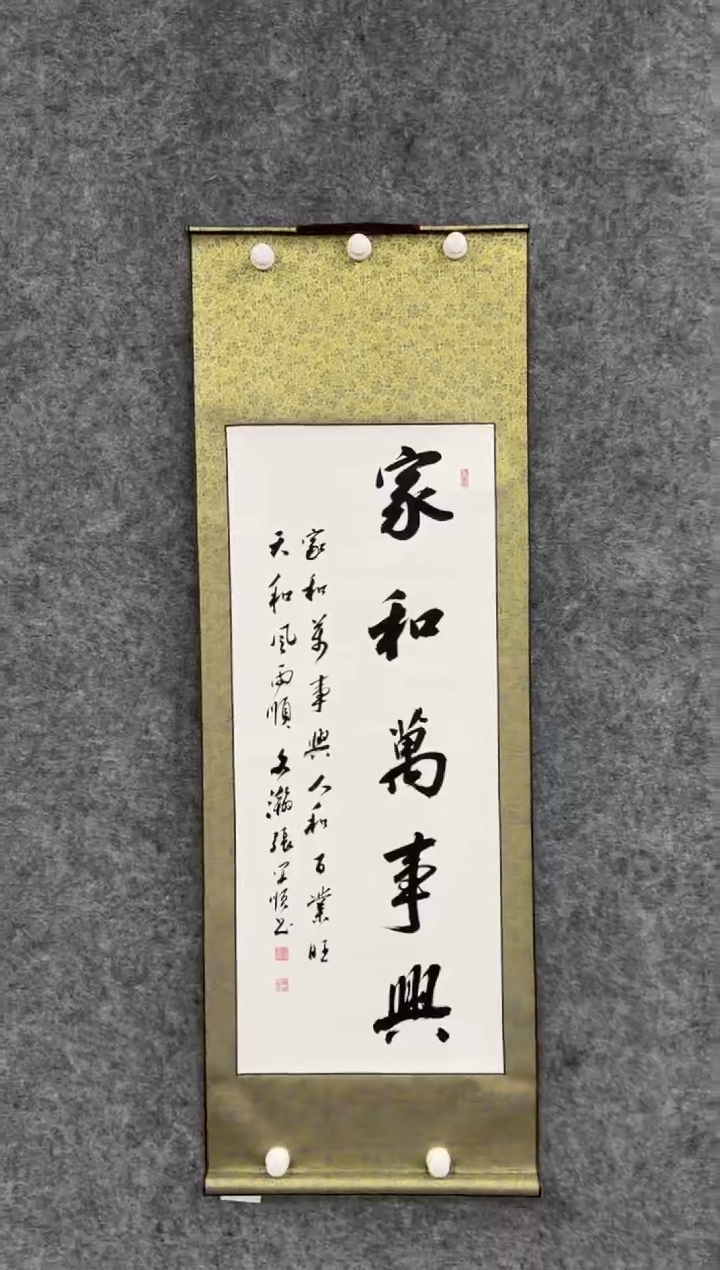 家和萬事興
家和萬事興人和百業旺
天和風雨順 文瀚張 順书